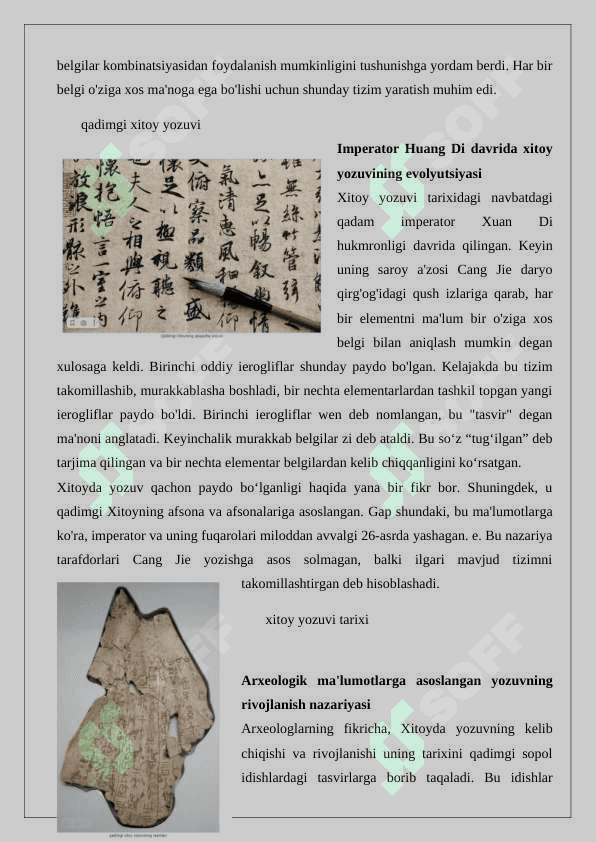 belgilar kombinatsiyasidan foydalanish mumkinligini tushunishga yordam berdi. Har bir
belgi o'ziga xos ma'noga ega bo'lishi uchun shunday tizim yaratish muhim edi.
qadimgi xitoy yozuvi
Imperator Huang Di davrida xitoy
yozuvining evolyutsiyasi
Xitoy yozuvi tarixidagi navbatdagi
qadam imperator Xuan Di
hukmronligi davrida qilingan. Keyin
uning saroy a'zosi Cang Jie daryo
qirg'og'idagi qush izlariga qarab, har
bir elementni ma'lum bir o'ziga xos
belgi bilan aniqlash mumkin degan
xulosaga keldi. Birinchi oddiy ierogliflar shunday paydo bo'lgan. Kelajakda bu tizim
takomillashib, murakkablasha boshladi, bir nechta elementarlardan tashkil topgan yangi
ierogliflar paydo bo'ldi. Birinchi ierogliflar wen deb nomlangan, bu "tasvir" degan
ma'noni anglatadi. Keyinchalik murakkab belgilar zi deb ataldi. Bu so‘z “tug‘ilgan” deb
tarjima qilingan va bir nechta elementar belgilardan kelib chiqqanligini ko‘rsatgan.
Xitoyda yozuv qachon paydo bo‘lganligi haqida yana bir fikr bor. Shuningdek, u
qadimgi Xitoyning afsona va afsonalariga asoslangan. Gap shundaki, bu ma'lumotlarga
ko'ra, imperator va uning fuqarolari miloddan avvalgi 26-asrda yashagan. e. Bu nazariya
tarafdorlari Cang Jie yozishga asos solmagan, balki ilgari mavjud tizimni
takomillashtirgan deb hisoblashadi.
xitoy yozuvi tarixi
Arxeologik ma'lumotlarga asoslangan yozuvning
rivojlanish nazariyasi
Arxeologlarning fikricha, Xitoyda yozuvning kelib
chiqishi va rivojlanishi uning tarixini qadimgi sopol
idishlardagi tasvirlarga borib taqaladi. Bu idishlar
SOFF
SOFF
SOFF
SOFF
SOFF
SOFF